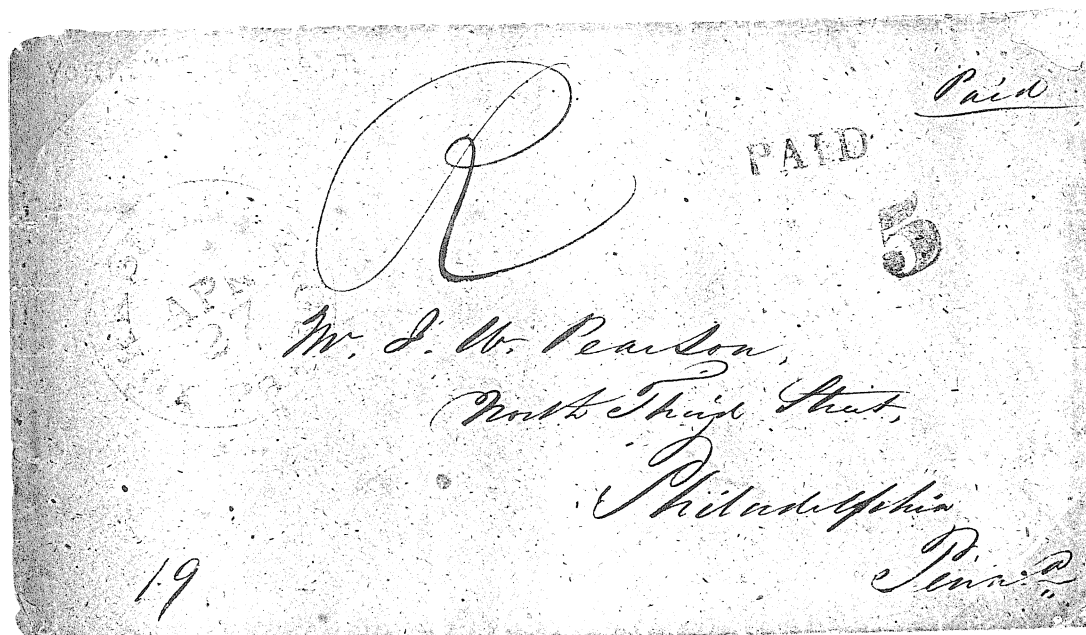 Paid
R
PAID
5
APR
27
Mr. J. W. Pearson,
North Third Street,
Philadelphia
Penn.a
19